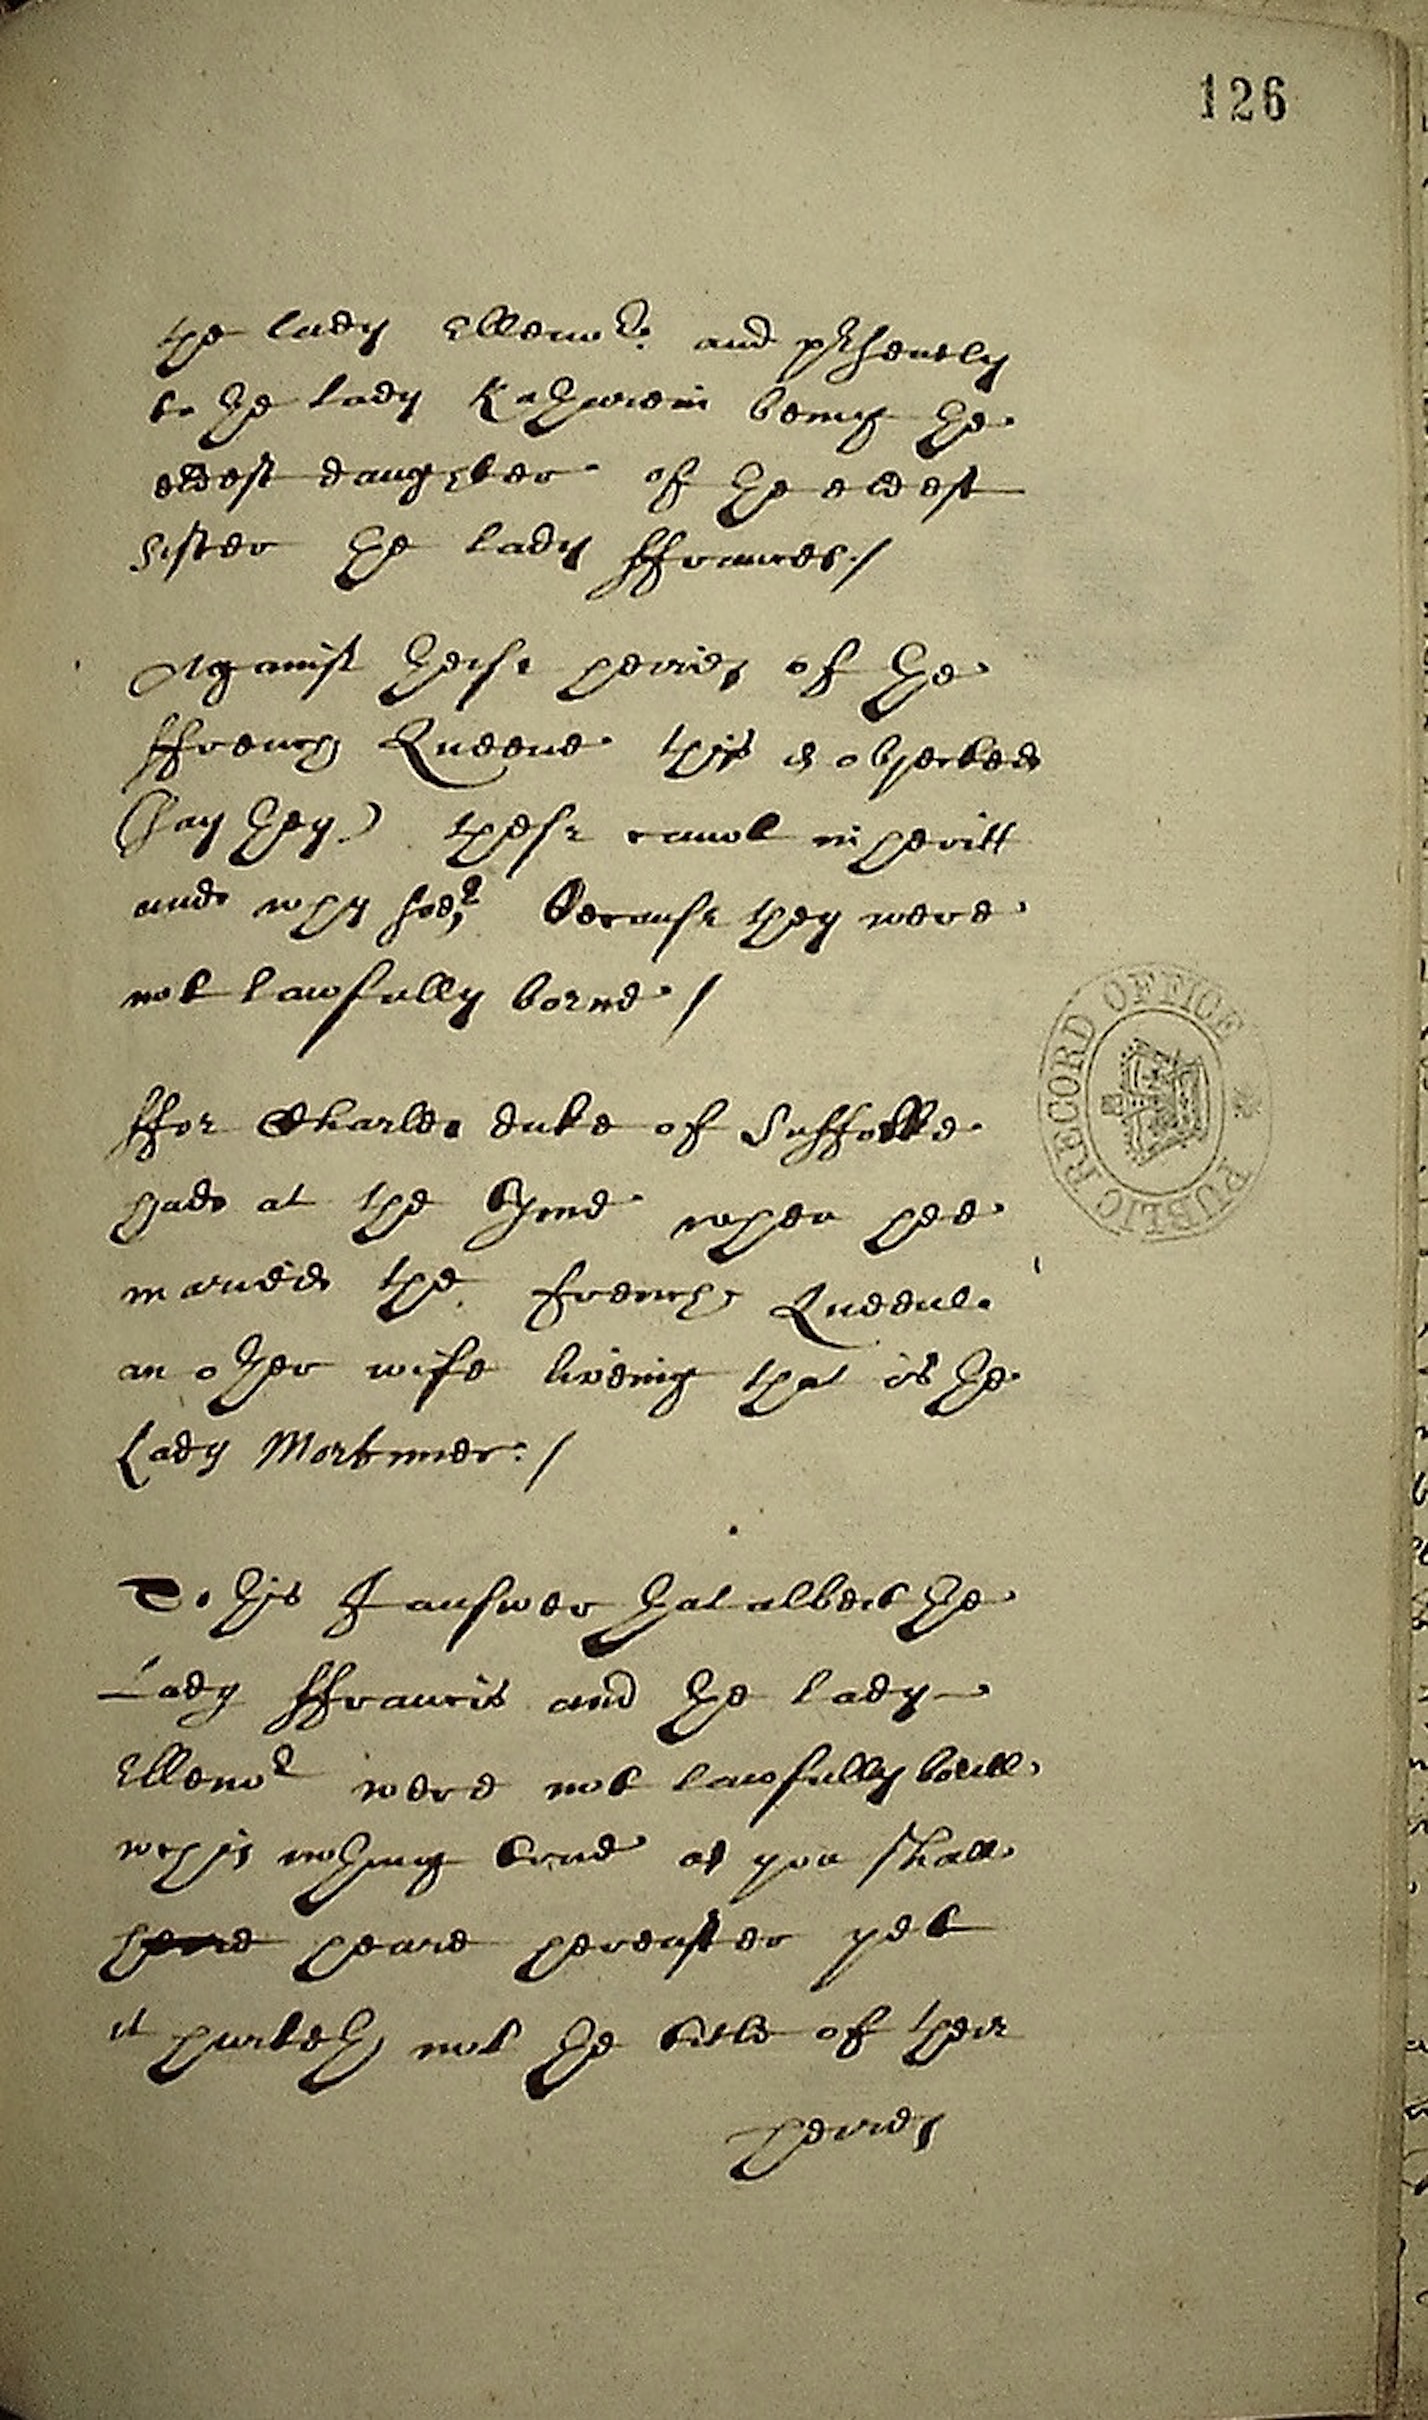 126
the lady Ellenor. and presently
to the lady Katherein being the
eldest daughter of the eldest
sister the lady ffrances./
Against theise heires of the
ffrench Queene this is objected
(say they) these canot inheritt
and why soe? because they were
not lawfully borne /
ffor Charles duke of Suffolke
had at the tyme when hee
maried the french Queene
an other wife liveing that is the
Lady Mortimer./
To this I answer that albeit the
Lady ffrancis and the lady
Ellenor were not lawfully
wch is nothing true as you shall
heare heare hereafter yet
it hurteth not the title of their
heires
PUBLIC RECORD OFFICE